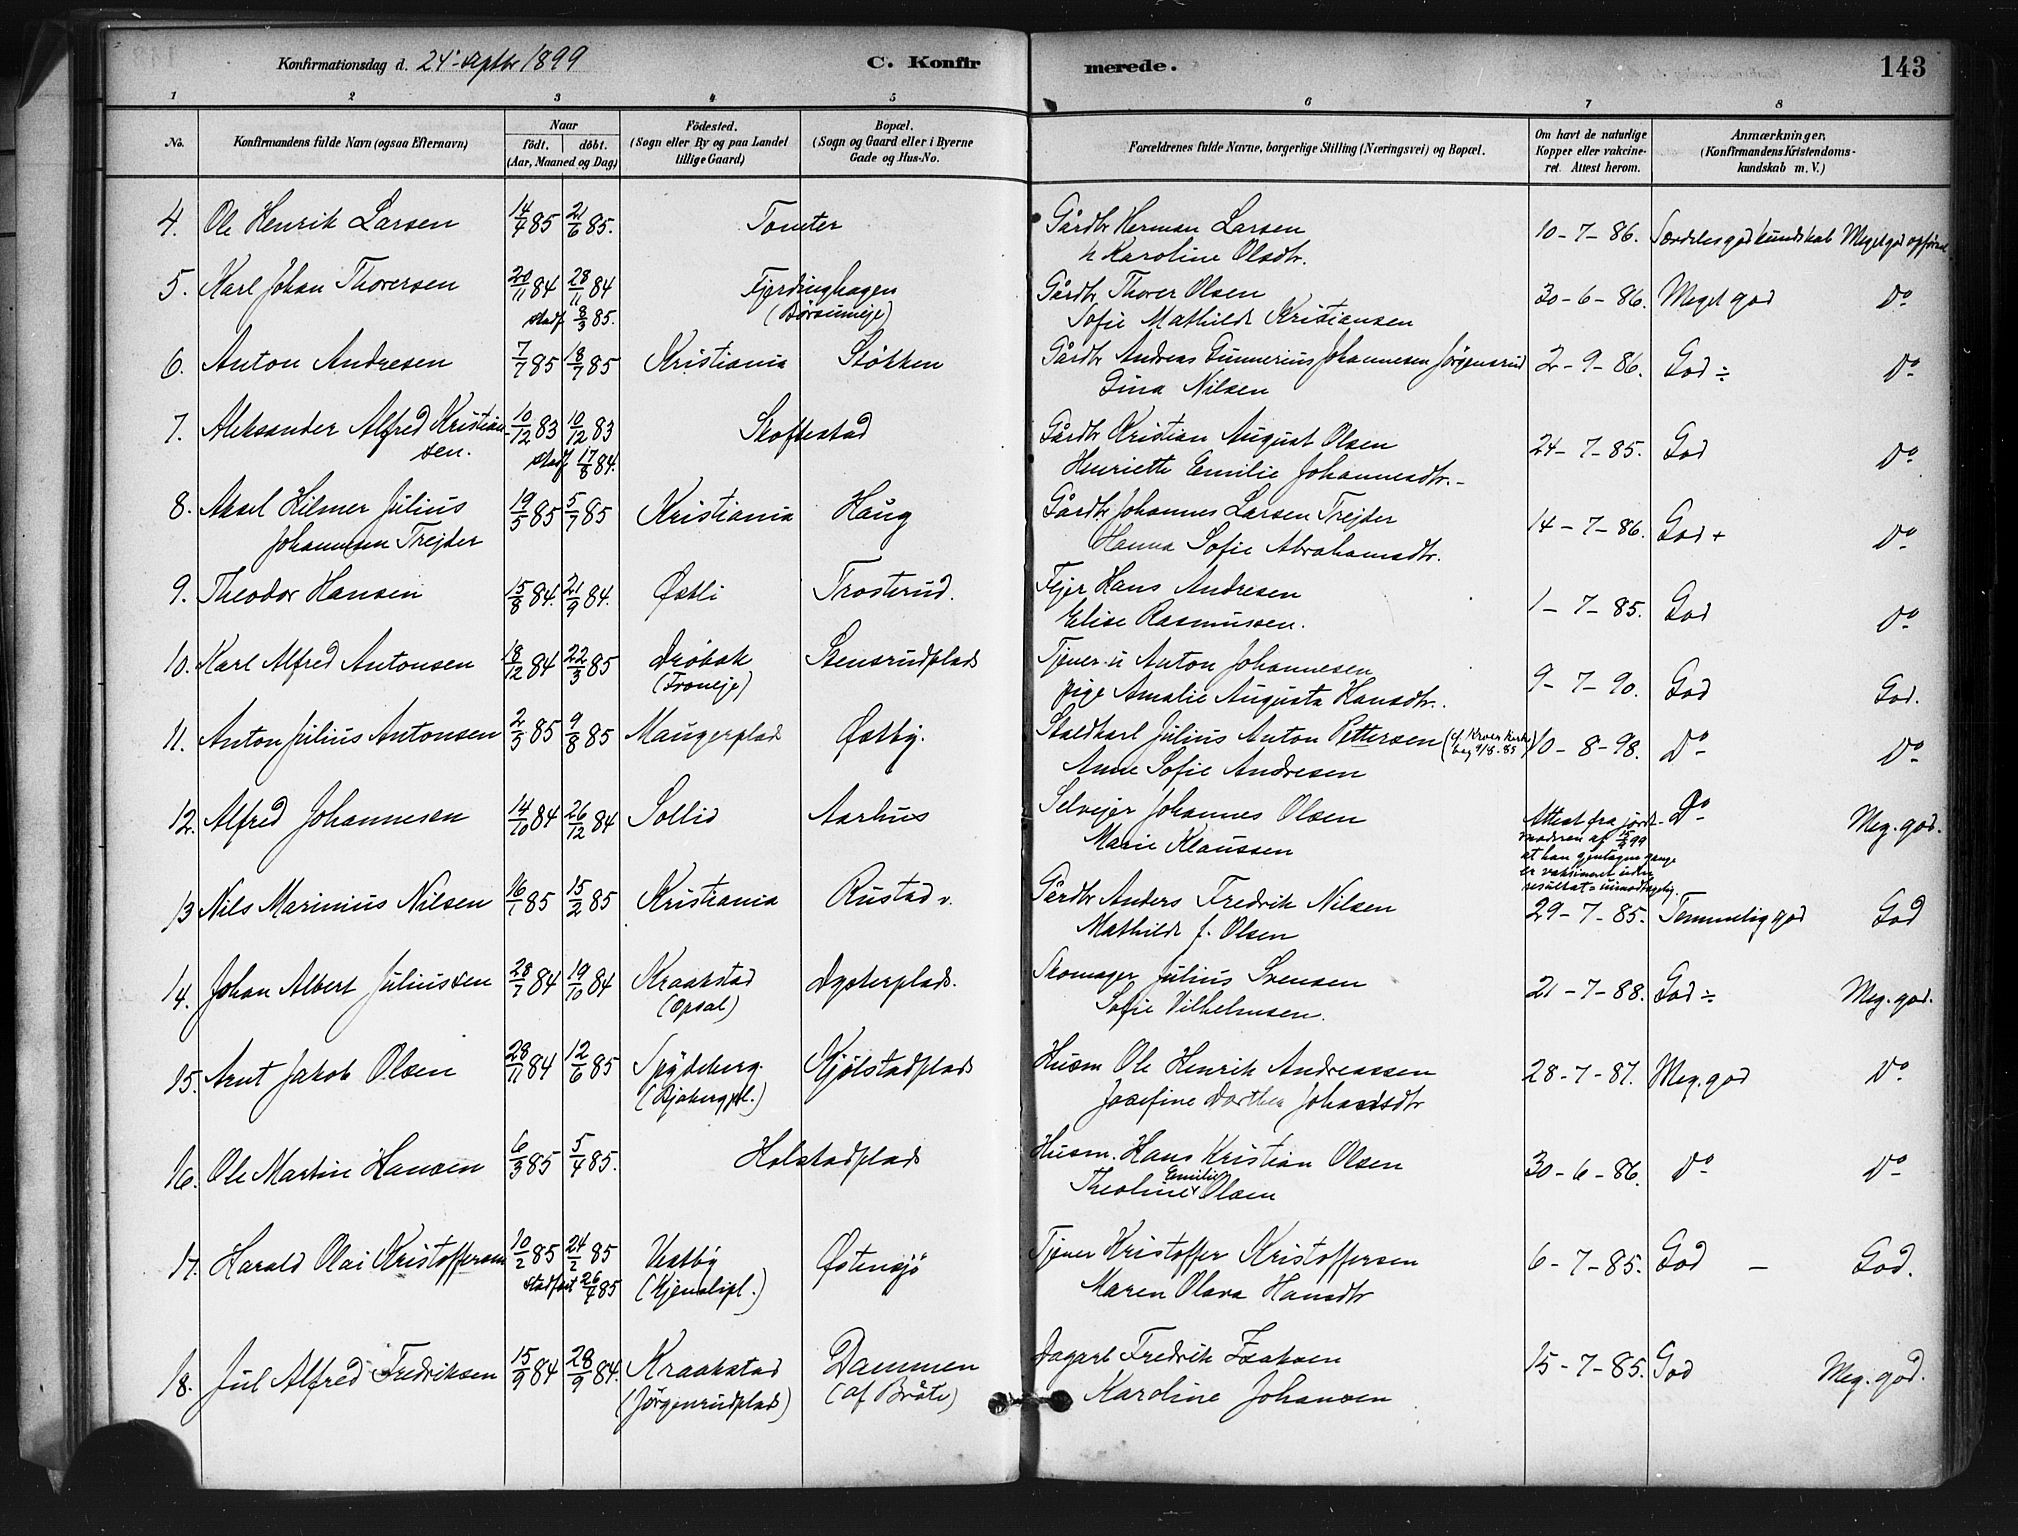 Konfirmationsdag d. 24' Septbr 1899
C. Konfirmerede.
143
1 2 3 4 5 6 7 8
No.
Konfirmandens fulde Navn (ogsaa Efternavn)
Naar
födt. döbt.
(Aar, Maaned og Dag)
Födested.
(Sogn eller By og paa Landet
tillige Gaard)
Bopæl.
(Sogn og Gaard eller i Byerne
Gade og Hus-No.
Forældrenes fulde Navne, borgerlige Stilling (Næringsvei) og Bopæl.
Om havt de naturlige
Kopper eller vakcine-
ret. Attest herom.
Anmærkninger,
(Konfirmandens Kristendoms-
kundskab m. V.)
4. Ole Henrik Larsen 14/4 85 21/6 85. Tomter Gårdbr Herman Larsen 10-7-86. Særdeles god kundskab Meget god opførsel
h Karoline Olsdtr.
5. Karl Johan Thoversen 20/11 84 28/11 84 Fjerdinghagen Gårdbr Thover Olsen 30-6-86. Meget god Do
stadf 8/3 85. (Børsumeje) Sofie Mathilde Kristiansen
6. Anton Andresen 7/7 85 18/7 85 Kristiania Støkken Gårdbr Andreas Gunnerius Johannesen Jörgensrud 2-9-86. God ÷ Do
Gina Nilsen
7. Aleksander Alfred Kristian- 10/12 83 10/12 83 Skoftestad Gårdbr Kristian August Olsen 24-7-85. God Do
sen. stadf 17/8 84. Henriette Emilie Johannesdtr.-
8. Aksel Hilmer Julius 19/5 85 5/7 85 Kristiania Haug Gårdbr Johannes Larsen Trejder 14-7-86. God + Do
Johannesen Trejder Hanna Sofie Abrahamsdtr.
9. Theodor Hansen 15/8 84. 21/9 84. Østli Trosterud. Fejer Hans Andresen 1-7-85. God Do
Elise Rasmussen.
10. Karl Alfred Antonsen 18/12 84 22/3 85 Drøbak Stensrudplads Tjener u Anton Johannesen 9-7-90. God God.
(Froneje) pige Amalie Augusta Hansdtr.
11. Anton Julius Antonsen 2/5 85 9/8 85 Maugerplads Østby. Staldkarl Julius Anton Pettersen (cf Kroer kirke 10-8-98. Do Do
beg 9/8-85) Anne Sofie Andresen
12. Alfred Johannesen 14/10 84 26/12 84 Sollid Aarhus Selvejer Johannes Olsen Attest fra jord- Do Meg. god.
Marie Klaussen moderen af 15/9 99
at han gjentagne gange
er vaksineret uden
resultat = uimodtagelig.
13 Nils Marinius Nilsen 16/1 85 15/2 85 Kristiania Rustad v. Gårdbr Anders Fredrik Nilsen 29-7-85. Temmelig god God
Mathilde f. Olsen
14. Johan Albert Juliussen 28/7 84 19/10 84 Kraakstad Dysterplads. Skomager Julius Svensen 21-7-88. God ÷ Meg. god.
(Opsal) Sofie Vilhelmsen.
15. Arnt Jakob Olsen 28/11 84 12/6 85 Spydeberg. Kjølstadplads Husm Ole Henrik Andreassen 28-7-87. Meg. god Do
(Bjabergpl.) Josefine Dorthea Johansdtr
16. Ole Martin Hansen 6/3 85 5/4 85. Holstadplads Husm. Hans Kristian Olsen 30-6-86. Do Do
Theoline Emilie Olsen
17. Harald Olai Kristoffersen 10/2 85 24/2 85 Vestby Østensjö Tjener Kristoffer Kristoffersen 6-7-85. God - God.
stadfæst 26/4 85 (Kjenslipl.) Maren Olava Hansdtr
18. Jul Alfred Fredriksen 15/9 84 28/9 84. Kraakstad Dammen Dagarb Fredrik Isaksen 15-7-85. God Meg. god.
(Jörgenrudplads) (af Bråte) Karoline Johansen